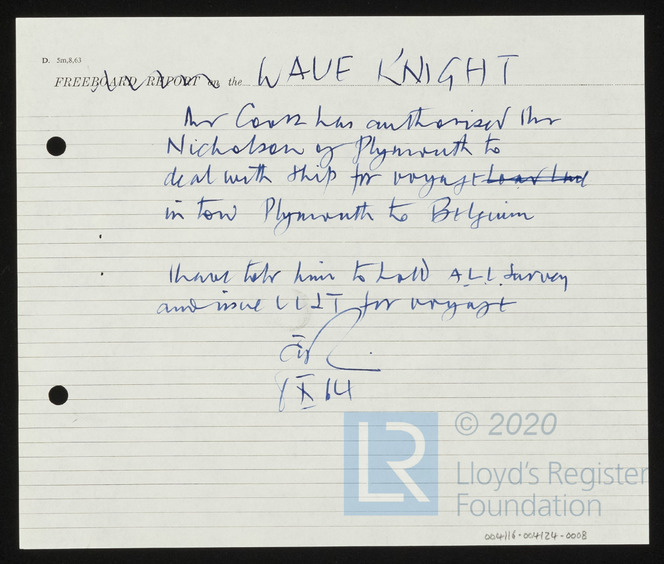 D. 5m,8,63
FREEBOARD REPORT on the WAVE KNIGHT
Mr Cooks has authorised Mr
Nicholson of Plymouth to
deal with ship for voyage
in tow Plymouth to Belgium
I have told him to hold A.L.L. Survey
and issue for voyage
X 64
LR
© 2020
Lloyd's Register
Foundation
004116-004124-0008